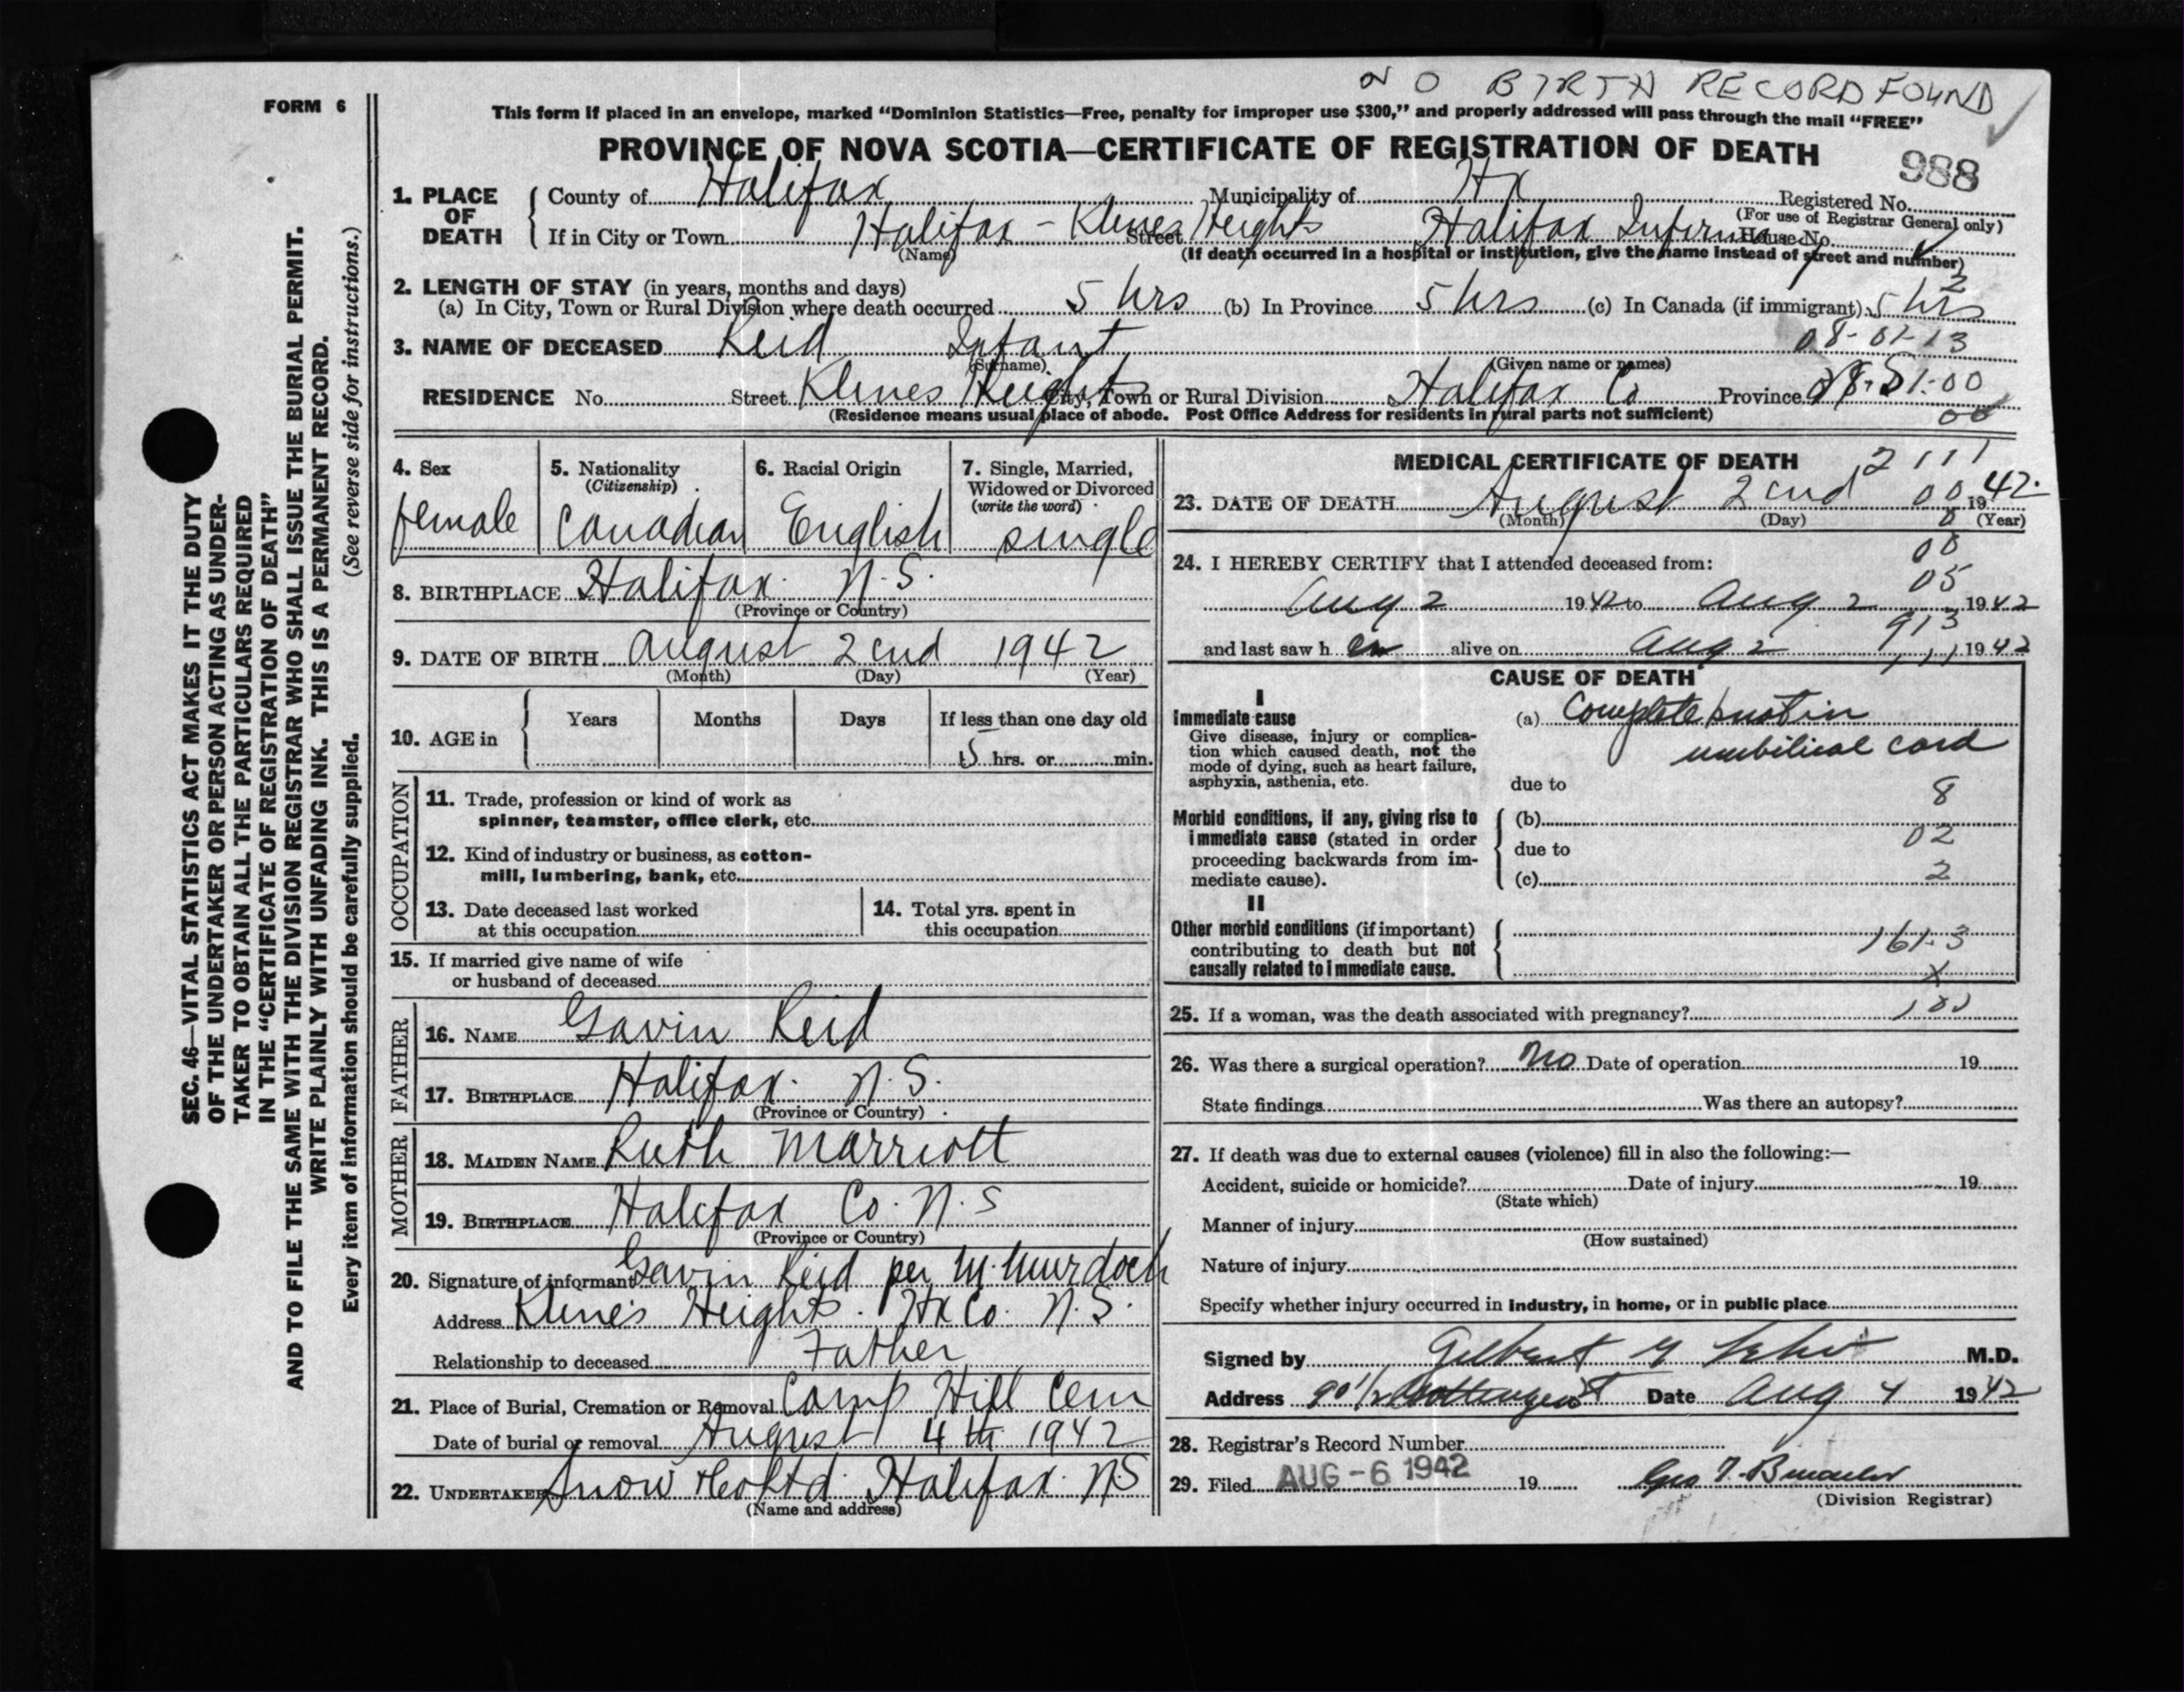 NO BIRTH RECORD FOUND
FORM 6
This form if placed in an envelope, marked "Dominion Statistics—Free, penalty for improper use $300," and properly addressed will pass through the mail "FREE"
PROVINCE OF NOVA SCOTIA—CERTIFICATE OF REGISTRATION OF DEATH
988
1. PLACE OF DEATH
County of Halifax Municipality of Hx Registered No.
(For use of Registrar General only)
If in City or Town Halifax - Klines Heights Street Halifax Infirmary House No.
(Name) (If death occurred in a hospital or institution, give the name instead of street and number)
2. LENGTH OF STAY (in years, months and days)
2
(a) In City, Town or Rural Division where death occurred 5 hrs (b) In Province 5 hrs (c) In Canada (if immigrant) 5 hrs
08-01-13
3. NAME OF DECEASED Reid Infant
(Surname) (Given name or names)
RESIDENCE No. Street Klines Heights City, Town or Rural Division Halifax Co Province
(Residence means usual place of abode. Post Office Address for residents in rural parts not sufficient)
00
4. Sex
female
5. Nationality
(Citizenship)
Canadian
6. Racial Origin
English
7. Single, Married,
Widowed or Divorced
(write the word)
single
8. BIRTHPLACE Halifax. N.S.
(Province or Country)
9. DATE OF BIRTH August 2cnd 1942
(Month) (Day) (Year)
10. AGE in
Years Months Days If less than one day old
5 hrs. or min.
OCCUPATION
11. Trade, profession or kind of work as
spinner, teamster, office clerk, etc.
12. Kind of industry or business, as cotton-
mill, lumbering, bank, etc.
13. Date deceased last worked
at this occupation
14. Total yrs. spent in
this occupation
15. If married give name of wife
or husband of deceased
FATHER
16. NAME Gavin Reid
17. BIRTHPLACE Halifax. N.S.
(Province or Country)
MOTHER
18. MAIDEN NAME Ruth Marriott
19. BIRTHPLACE Halifax Co. N.S
(Province or Country)
20. Signature of informant Gavin Reid per M. Murdoch
Address Kline's Heights. Hx Co. N.S.
Relationship to deceased Father
21. Place of Burial, Cremation or Removal Camp Hill Cem
Date of burial or removal August 4th 1942
22. UNDERTAKER Snow & Co Ltd. Halifax. N.S
(Name and address)
MEDICAL CERTIFICATE OF DEATH
2111
23. DATE OF DEATH August 2cnd 00 1942.
(Month) (Day) (Year)
0
24. I HEREBY CERTIFY that I attended deceased from:
00
05
Aug 2 1942 to Aug 2 1942
913
and last saw h er alive on Aug 2 1942
CAUSE OF DEATH
I
Immediate cause
Give disease, injury or complica-
tion which caused death, not the
mode of dying, such as heart failure,
asphyxia, asthenia, etc.
(a) Complete knot in
umbilical cord
due to
8
Morbid conditions, if any, giving rise to
immediate cause (stated in order
proceeding backwards from im-
mediate cause).
(b)
02
due to
(c) 2
II
Other morbid conditions (if important)
contributing to death but not
causally related to immediate cause.
161.3
X
25. If a woman, was the death associated with pregnancy?
26. Was there a surgical operation? No Date of operation 19
State findings Was there an autopsy?
27. If death was due to external causes (violence) fill in also the following:—
Accident, suicide or homicide? Date of injury 19
(State which)
Manner of injury
(How sustained)
Nature of injury
Specify whether injury occurred in industry, in home, or in public place
Signed by Gilbert M.D.
Address 90 1/2 Gottingen St Date Aug 4 1942
28. Registrar's Record Number
29. Filed AUG -6 1942 19
(Division Registrar)
SEC. 46—VITAL STATISTICS ACT MAKES IT THE DUTY
OF THE UNDERTAKER OR PERSON ACTING AS UNDER-
TAKER TO OBTAIN ALL THE PARTICULARS REQUIRED
IN THE "CERTIFICATE OF REGISTRATION OF DEATH"
AND TO FILE THE SAME WITH THE DIVISION REGISTRAR WHO SHALL ISSUE THE BURIAL PERMIT.
WRITE PLAINLY WITH UNFADING INK. THIS IS A PERMANENT RECORD.
Every item of information should be carefully supplied. (See reverse side for instructions.)